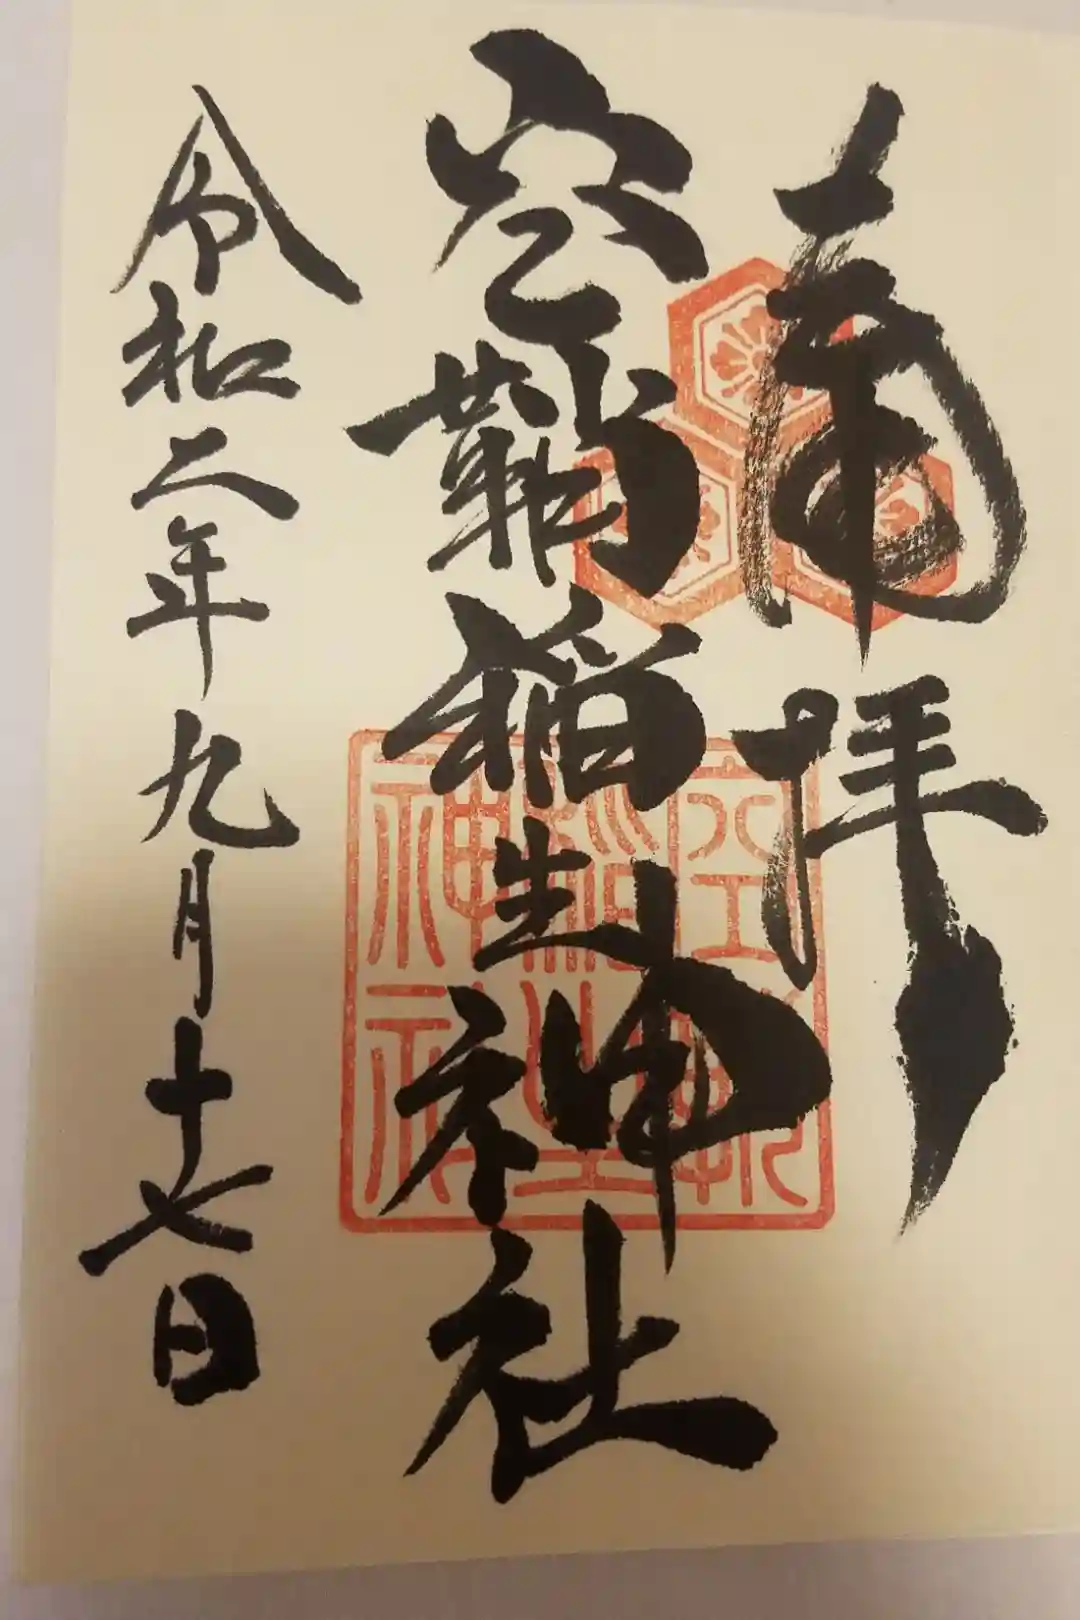 奉拝
空鞘稲生神社
令和二年九月十七日
空鞘
稲生
神社